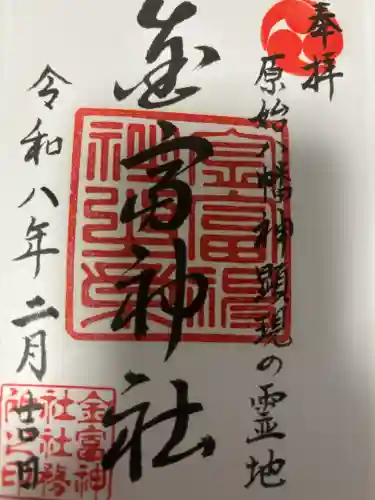 奉拝
原始八幡神顕現の霊地
金富神社
令和八年二月廿四日
金富神
社社務
所之印